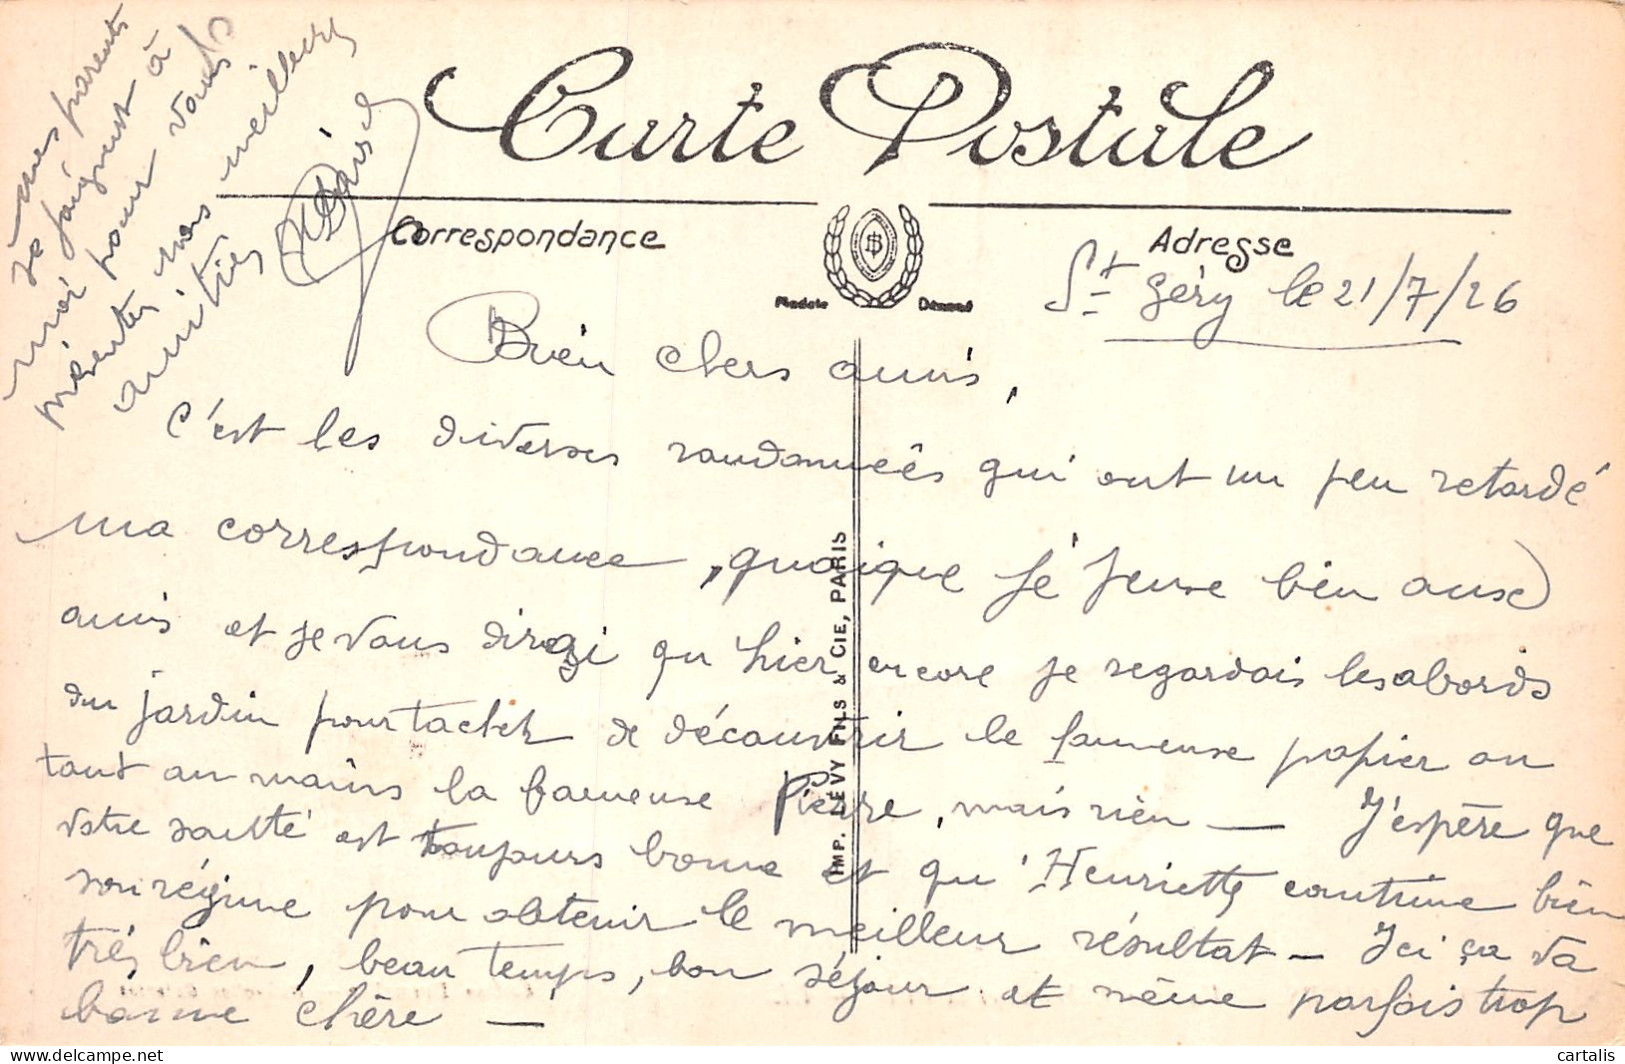 Carte Postale
Correspondance
Adresse
Modèle
Déposé
St Géry le 21/7/26
Bien chers amis,
C'est les diverses randonneés qui ont un peu retardé
ma correspondance, quoique je pense bien aux
amis et je vous dirai qu'hier encore je regardais les abords
du jardin pour tacher de découvrir le fameuse papier ou
tout au moins la fameuse Pierre, mais rien — J'espère que
votre santé est toujours bonne et qu'Henriette continue bien
son régime pour obtenir le meilleur résultat — Ici ça va
très bien, beau temps, bon séjour et même parfois trop
bonne chère —
mes parents
se joignent à
moi pour vous
présenter nos meilleures
amitiés
IMP. LÉVY FILS & CIE, PARIS
© cartalis
www.delcampe.net
cartalis